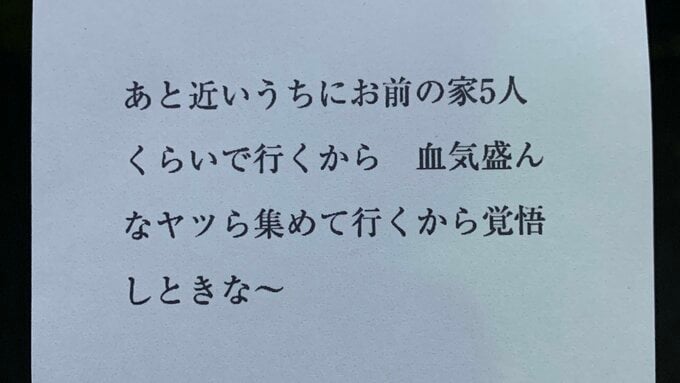 あと近いうちにお前の家5人
くらいで行くから　血気盛ん
なヤツら集めて行くから覚悟
しときな〜